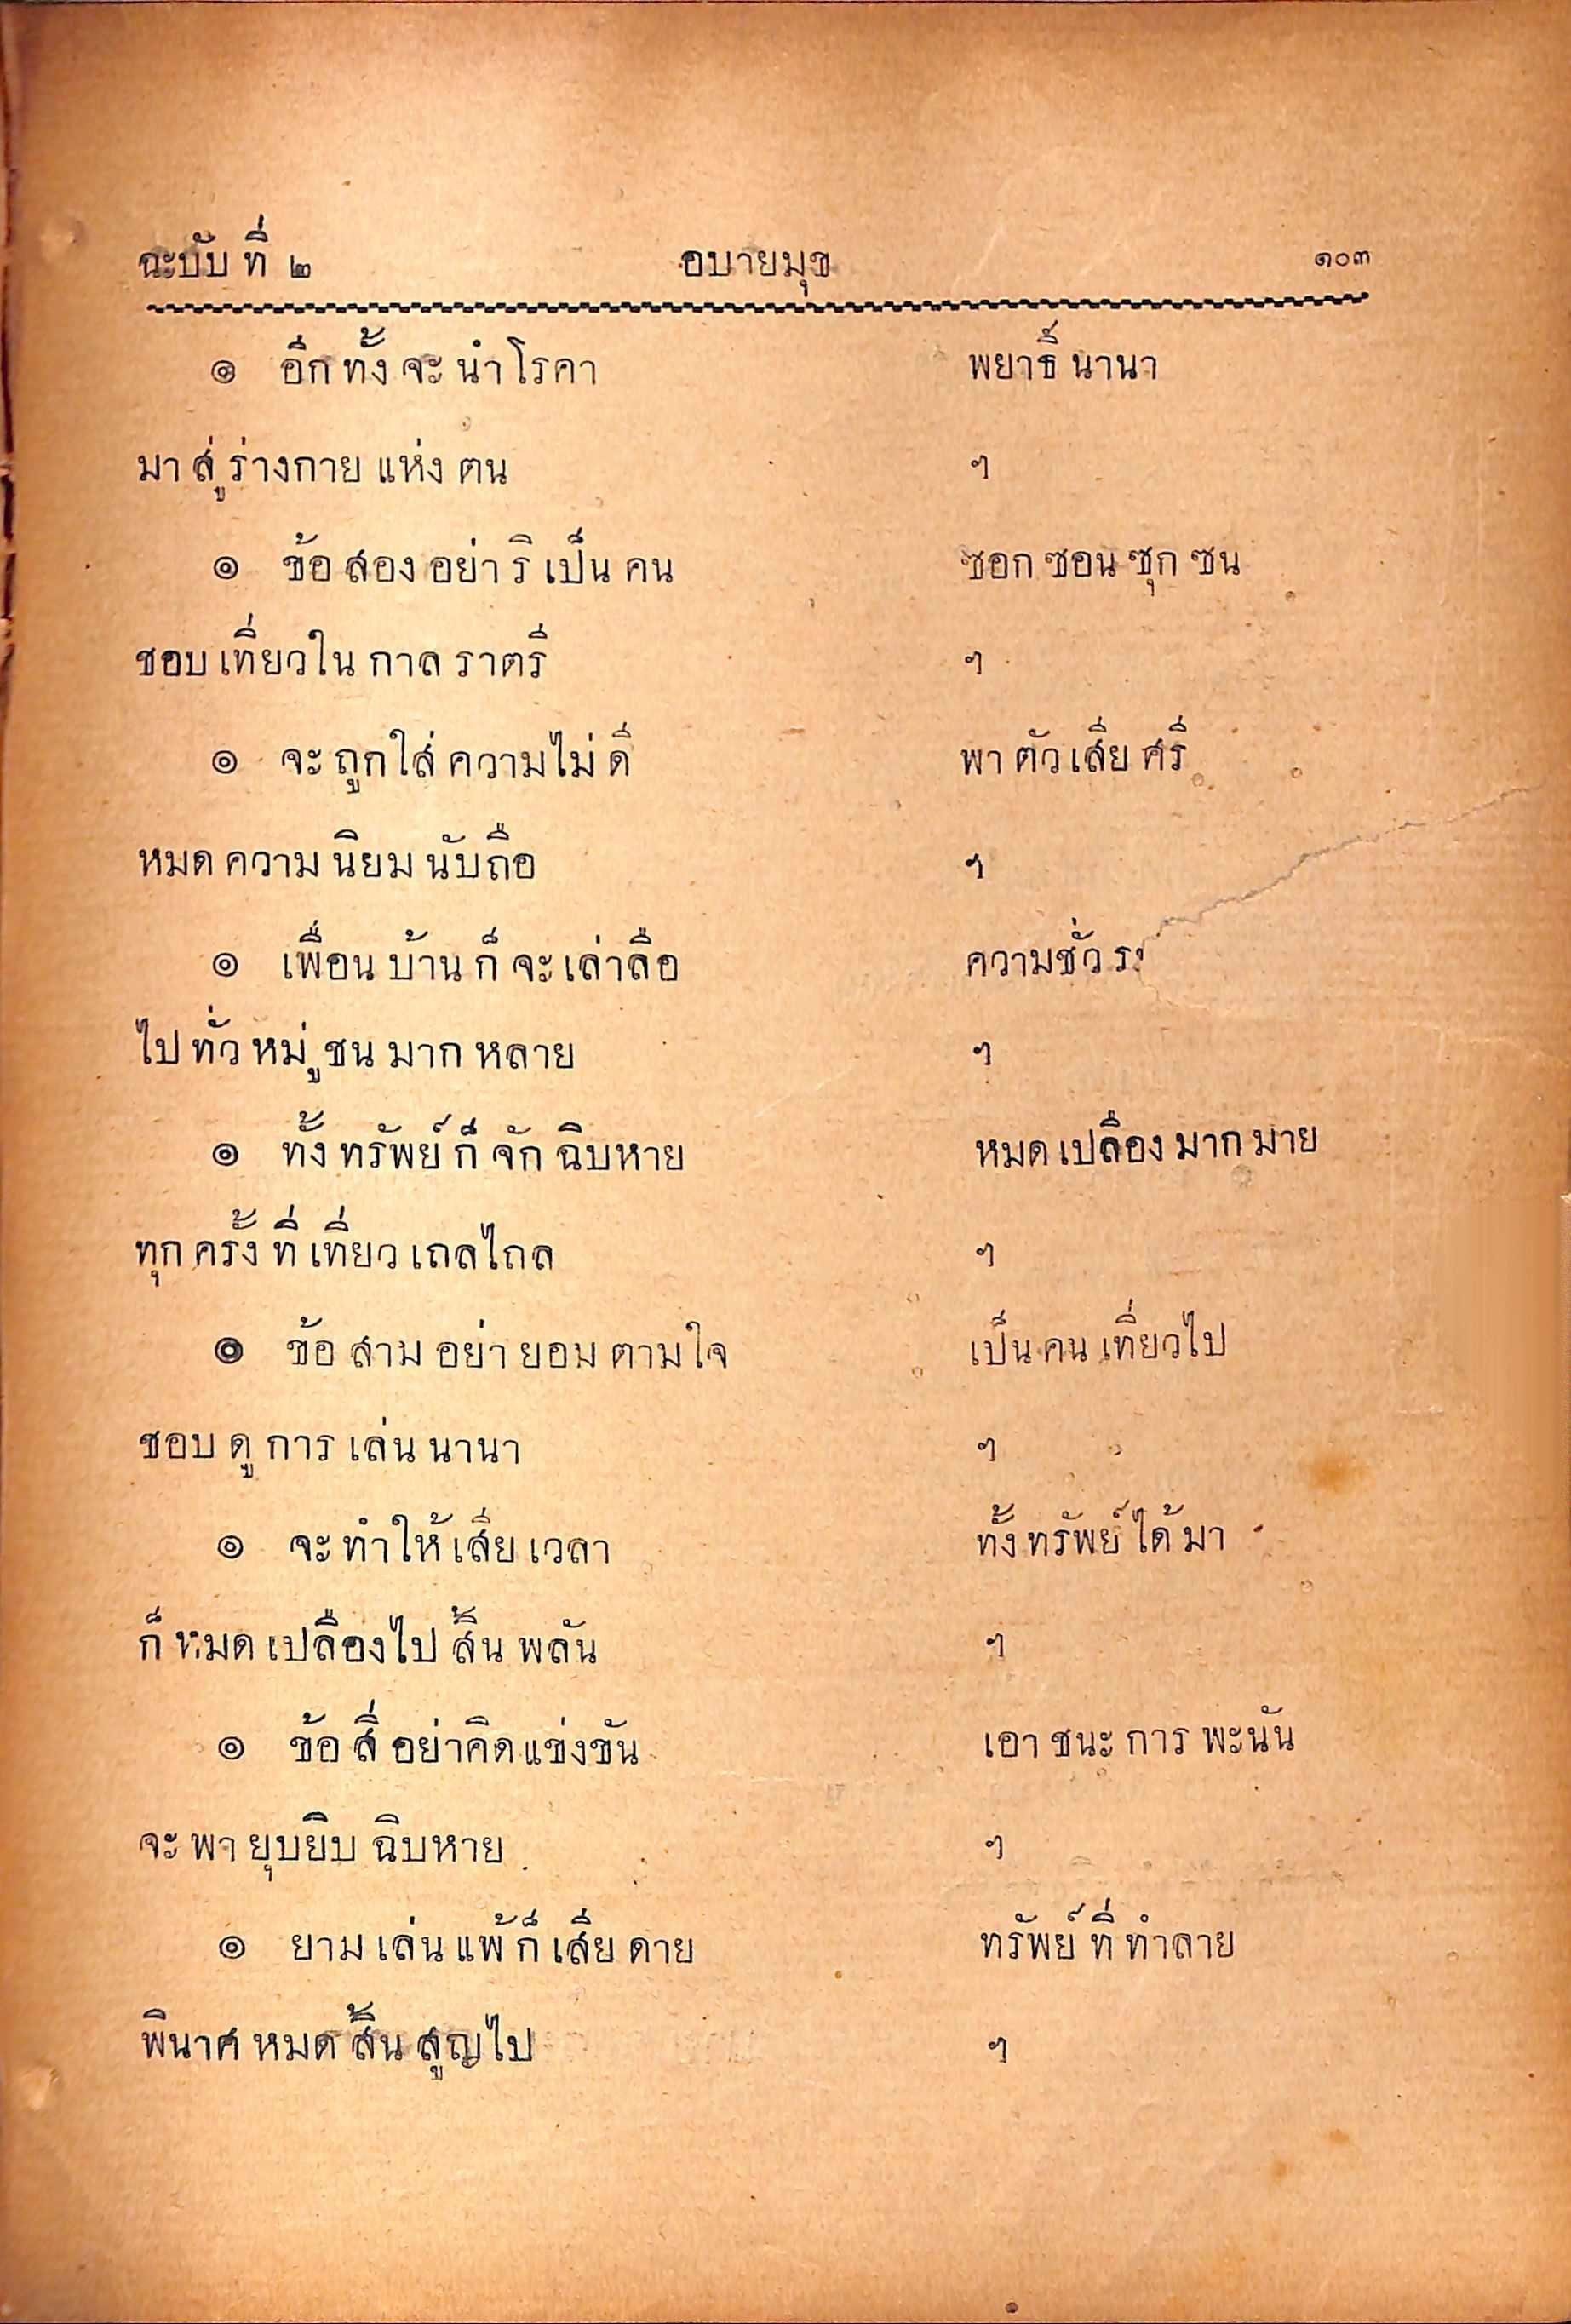 ฉะบับ ที่ ๒ อบายมุข ๑๐๓
๏ อีก ทั้ง จะ นำ โรคา พยาธิ์ นานา
มา สู่ ร่างกาย แห่ง ตน ฯ
๏ ข้อ สอง อย่า ริ เป็น คน ซอก ซอน ซุก ซน
ชอบ เที่ยว ใน กาล ราตรี ฯ
๏ จะ ถูก ใส่ ความ ไม่ ดี พา ตัว เสีย ศรี
หมด ความ นิยม นับถือ ฯ
๏ เพื่อน บ้าน ก็ จะ เล่าลือ ความชั่ว
ไป ทั่ว หมู่ ชน มาก หลาย ฯ
๏ ทั้ง ทรัพย์ ก็ จัก ฉิบหาย หมด เปลือง มาก มาย
ทุก ครั้ง ที่ เที่ยว เถลไถล ฯ
๏ ข้อ สาม อย่า ยอม ตาม ใจ เป็น คน เที่ยว ไป
ชอบ ดู การ เล่น นานา ฯ
๏ จะ ทำ ให้ เสีย เวลา ทั้ง ทรัพย์ ได้ มา
ก็ หมด เปลือง ไป สิ้น พลัน ฯ
๏ ข้อ สี่ อย่า คิด แข่งขัน เอา ชนะ การ พะนัน
จะ พา ยุบยิบ ฉิบหาย ฯ
๏ ยาม เล่น แพ้ ก็ เสีย ดาย ทรัพย์ ที่ ทำลาย
พินาศ หมด สิ้น สูญ ไป ฯ